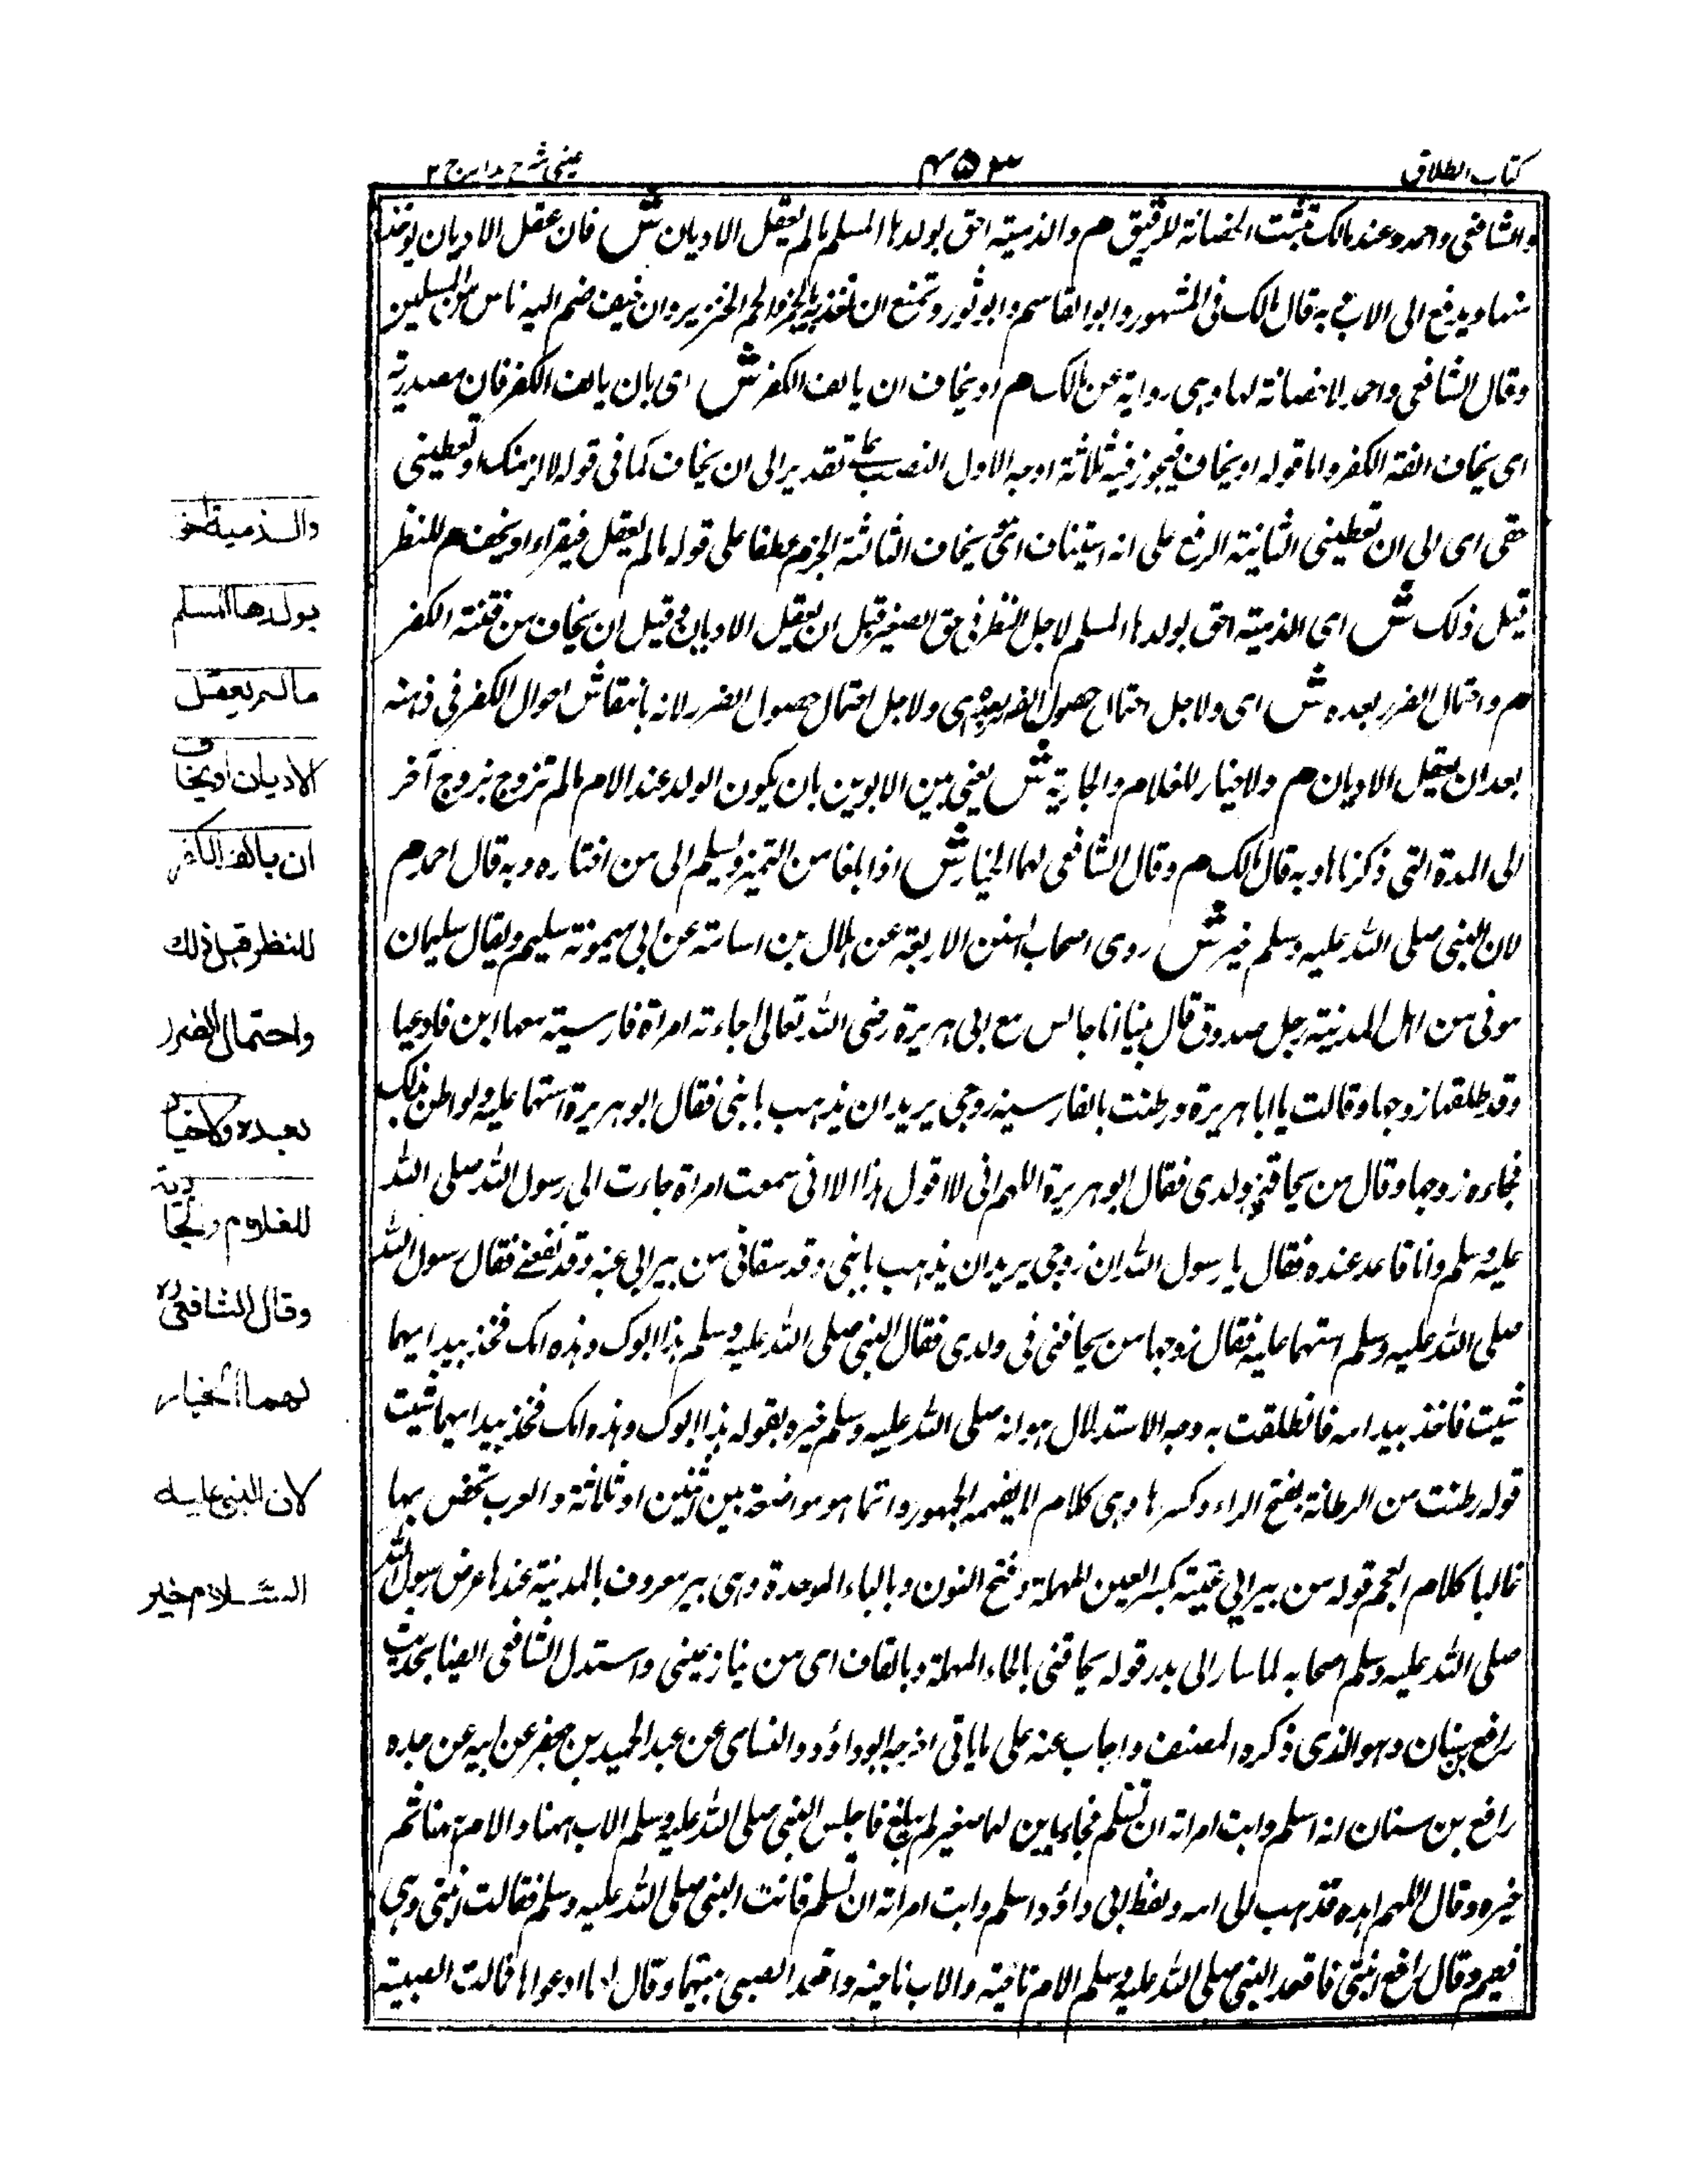 كتاب الطلاق
٤٥٣
عينى شرح هدايه ج ٢
والشافعى واحمد وعند مالك تثبت الحضانة للرقيق م والذمية احق بولدها المسلم مالم يعقل الاديان ش فان عقل الاديان يوخذ
منها ويدفع الى الاب وبه قال مالك فى المشهور وابو القاسم وابو ثور وتمنع ان تغذيه الخمر ولحم الخنزير وان خيف ضم اليه ناس من المسلمين
وقال الشافعى واحمد لا حضانة لها وهى رواية عن مالك م او يخاف ان يالف الكفر ش اى بان يالف الكفر فان مصدرية
اى يخاف الفة الكفر واما قوله او يخاف فيجوز فيه ثلاثة اوجه الاول النصب على تقدير الى ان يخاف كما فى قوله لالزمنك او تعطينى
حقى اى الى ان تعطينى الثانية الرفع على انه استيناف اى يخاف الثالثة الجزم عطفا على قوله مالم يعقل فيقراء او يخف م للنظر
قبل ذلك ش اى الذمية احق بولدها المسلم لاجل النظر فى حق الصغير قبل ان يعقل الاديان وقيل ان يخاف من فتنة الكفر
م واحتمال الضرر بعده ش اى ولاجل احتمال حصول الضرر بعده اى ولاجل احتمال حصول الضرر لانه بانتقاش احوال الكفر فى ذهنه
بعد ان يعقل الاديان م ولاخيار للغلام والجارية ش يعنى بين الابوين بان يكون الولد عند الام مالم تزوج بزوج آخر
الى المدة التى ذكرناها وبه قال مالك م وقال الشافعى لهما الخيار ش اذا بلغا سن التميز ويسلم الى من اختاره وبه قال احمد م
لان النبى صلى الله عليه وسلم خير ش روى اصحاب السنن الاربعة عن هلال بن اسامة عن ابى ميمونة سليم ويقال سليمان
مولى من اهل المدينة رجل صدوق قال بينا انا جالس مع ابى هريرة رضى الله تعالى اجاءته امراة فارسية معها ابن فادعيا
وقد طلقها زوجها وقالت يا ابا هريرة ورطنت بالفارسية زوجى يريد ان يذهب بابنى فقال ابو هريرة استهما عليه ولواطن بذلك
فجاءه زوجها وقال من يحاقنى ولدى فقال ابو هريرة اللهم انى لا اقول هذا الا انى سمعت امراة جاءت الى رسول الله صلى الله
عليه وسلم وانا قاعد عنده فقال يا رسول الله ان زوجى يريد ان يذهب بابنى وقد سقانى من بير ابى عنبه وقد نفعنى فقال رسول الله
صلى الله عليه وسلم استهما عليه فقال زوجها من يحاقنى فى ولدى فقال النبى صلى الله عليه وسلم هذا ابوك وهذه امك فخذ بيد ايهما
شيت فاخذ بيد امه فانطلقت به وجه الاستدلال هو انه صلى الله عليه وسلم خيره بقوله هذا ابوك وهذه امك فخذ بيد ايهما شيت
قوله رطنت من الرطانة بفتح الراء وكسرها وهى كلام لا يفهمه الجمهور وانما هو مواضعة بين اثنين او ثلاثة والعرب تخص بها
غالبا كلام العجم قوله من بير ابى عنبة بكسر العين المهملة وفتح النون وبالباء الموحدة وهى بير معروف بالمدينة عندها عرض رسول الله
صلى الله عليه وسلم اصحابه لما سار الى بدر قوله يحاقنى بالحاء المهملة وبالقاف اى من ينازعينى واستدل الشافعى ايضا بحديث
رافع بن سنان وهو الذى ذكره المصنف واجاب عنه على ما ياتى اخرجه ابو داؤد والنساى عن عبد الحميد بن جعفر عن ابيه عن جده
رافع بن سنان انه اسلم وابت امراته ان تسلم فجاء بابن لهما صغير لم يبلغ فاجلس النبى صلى الله عليه وسلم الاب ههنا والام ههنا ثم
خيره وقال اللهم اهده فذهب الى امه ولفظ ابى داؤد اسلم وابت امراته ان تسلم فاتت النبى صلى الله عليه وسلم فقالت ابنتى وهى
فطيم وقال رافع ابنتى فاقعد النبى صلى الله عليه وسلم الام ناحية والاب ناحية واقعد الصبى بينهما وقال لهما ادعواها فمالت الصبية
والذمية احق
بولدها المسلم
مالم يعقل
الاديان او يخاف
ان يالف الكفر
للنظر قبل ذلك
واحتمال الضرر
بعده ولا خيار
للغلام والجارية
وقال الشافعى رح
لهما الخيار
لان النبى عليه
السلام خير